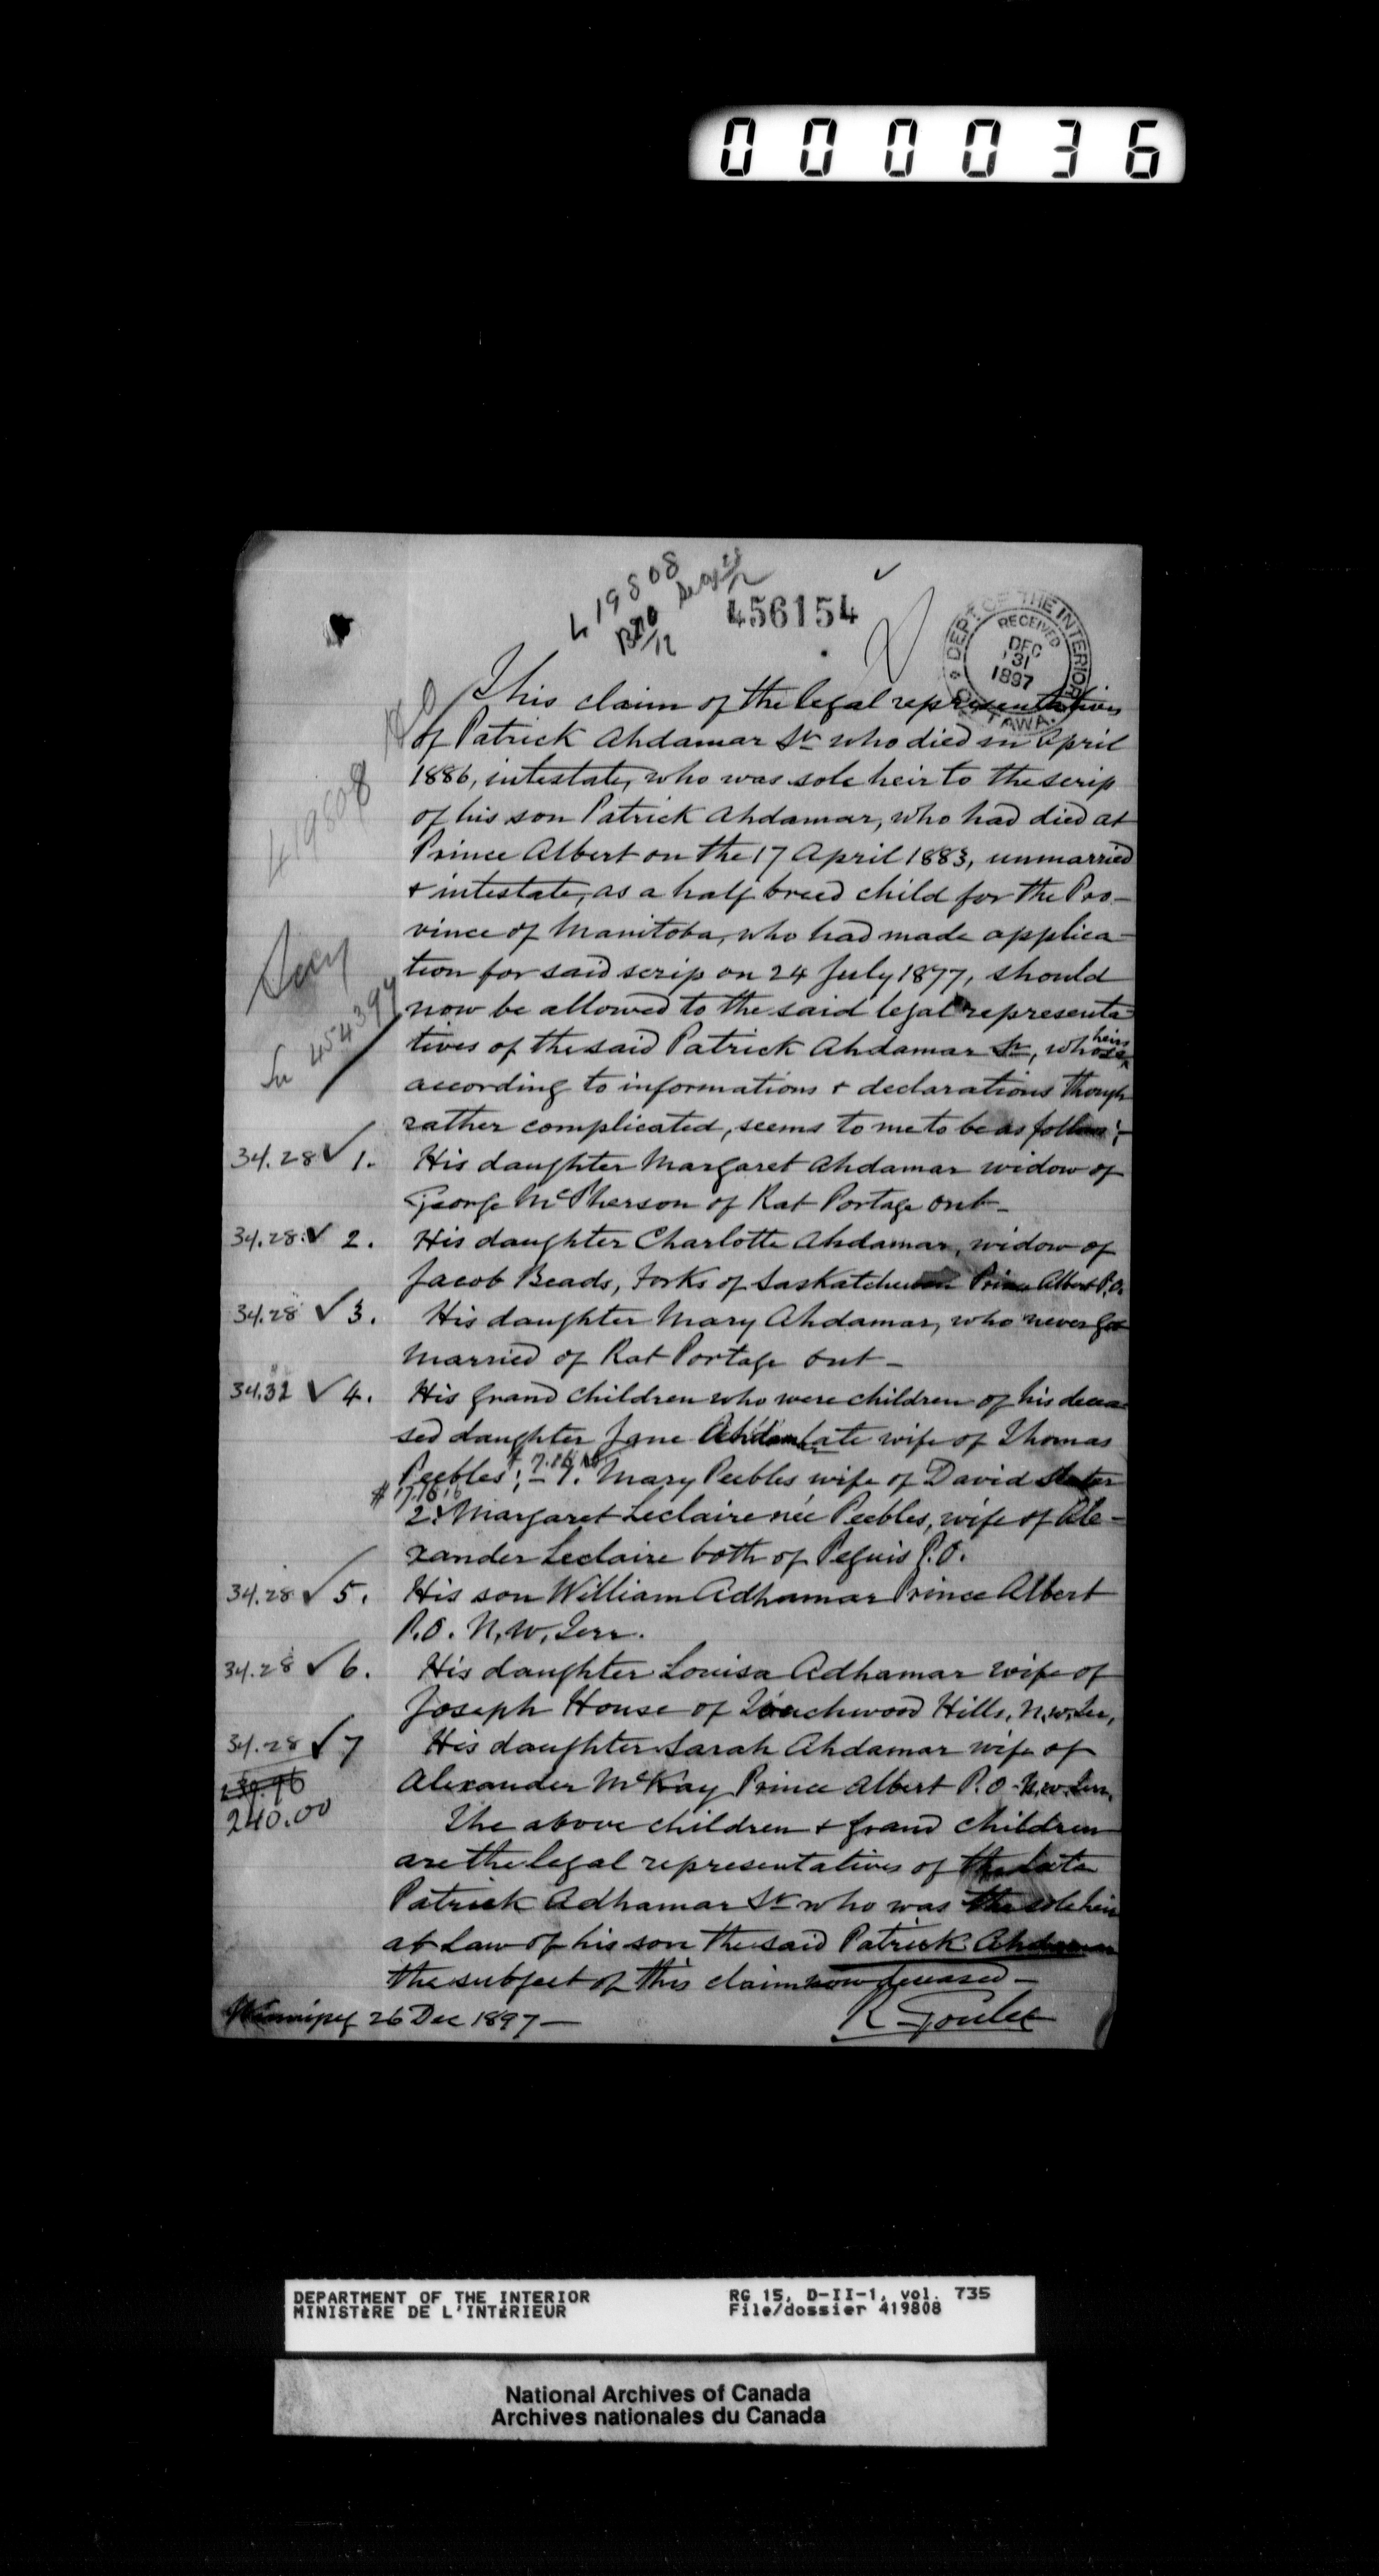 000036
419808
B 20/12
456154
DEPT. OF THE INTERIOR
RECEIVED
DEC
31
1897
OTTAWA.
This claim of the legal representatives
of Patrick Ahdamar Sr who died in April
1886, intestate, who was sole heir to the scrip
of his son Patrick Ahdamar, who had died at
Prince Albert on the 17 April 1883, unmarried
& intestate, as a half breed child for the Pro-
vince of Manitoba, who had made applica-
tion for said scrip on 24 July 1877, should
now be allowed to the said legal representa-
tives of the said Patrick Ahdamar Sr, whose heirs
according to informations & declarations though
rather complicated, seems to me to be as follows:-
419808
454394
34.28 ✓ 1. His daughter Margaret Ahdamar widow of
George McPherson of Rat Portage Ont-
34.28 ✓ 2. His daughter Charlotte Ahdamar, widow of
Jacob Beads, Forks of Saskatchewan Prince Albert P.O.
34.28 ✓ 3. His daughter Mary Ahdamar, who never got
married of Rat Portage Ont-
34.32 ✓ 4. His grand children who were children of his decea-
sed daughter Jane Ahdamar late wife of Thomas
Peebles; - 1. Mary Peebles wife of David Slater
# 17.16
2. Margaret Leclaire née Peebles, wife of Ale-
xander Leclaire both of Peguis P.O.
34.28 ✓ 5. His son William Adhamar Prince Albert
P.O. N.W. Terr.
34.28 ✓ 6. His daughter Louisa Adhamar wife of
Joseph House of Touchwood Hills, N.W. Ter,
34.28 ✓ 7 His daughter Sarah Ahdamar wife of
239.96 Alexander McKay Prince Albert P.O. N.W. Terr.
240.00 The above children & grand children
are the legal representatives of the late
Patrick Adhamar Sr who was the sole heir
at Law of his son the said Patrick Ahdamar
the subject of this claim now deceased-
Winnipeg 26 Dec 1897- R Goulet
DEPARTMENT OF THE INTERIOR RG 15, D-II-1, vol. 735
MINISTÈRE DE L'INTÉRIEUR File/dossier 419808
National Archives of Canada
Archives nationales du Canada